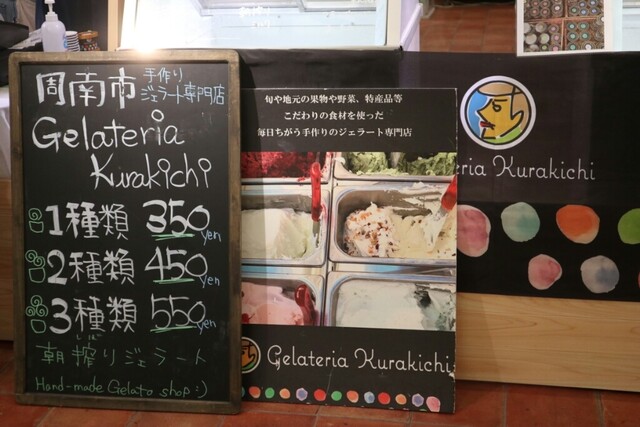 周南市 手作り
ジェラート専門店
Gelateria
Kurakichi
1種類 350yen
2種類 450yen
3種類 550yen
しぼ
朝搾りジェラート
Hand-made Gelato shop :)
旬や地元の果物や野菜、特産品等
こだわりの食材を使った
毎日ちがう手作りのジェラート専門店
Gelateria Kurakichi
eria Kurakichi